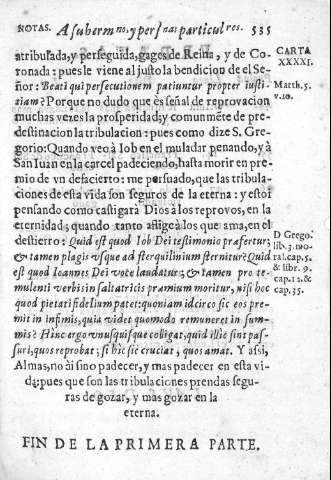 NOTAS. A su herm.no, y pers.nas particulres. 535
atribulada, y perseguida, gages de Reina, y de Co-
ronada: pues le viene al justo la bendicion de el Se-
ñor: Beati qui persecutionem patiuntur propter iusti-
tiam? Porque no dudo que es señal de reprovacion
muchas vezes la prosperidad, y comunmēte de pre-
destinacion la tribulacion: pues como dize S. Gre-
gorio: Quando veo à Iob en el muladar penando, y à
San Iuan en la carcel padeciendo, hasta morir en pre-
mio de vn desacierto: me persuado, que las tribula-
ciones de esta vida son seguros de la eterna: y estoi
pensando como castigarà Dios à los reprovos, en la
eternidad; quando tanto aflige à los que ama, en el
destierro: Quid est quod Iob Dei testimonio præfertur,
& tamen plagis vsque ad sterquilinium sternitur? Quid
est quod Ioannes Dei voce laudatur, & tamen pro te-
mulenti verbis in saltatricis præmium moritur, nisi hoc
quod pietati fidelium patet: quoniam idcirco sic eos pre-
mit in infimis, quia videt quomodo remuneret in sum-
mis? Hinc ergo vnusquisque colligat, quid illic sint pas-
suri, quos reprobat; si hic sic cruciat, quos amat. Y assi,
Almas, no ài sino padecer, y mas padecer en esta vi-
da; pues que son las tribulaciones prendas segu-
ras de gozar, y mas gozar en la
eterna.
FIN DE LA PRIMERA PARTE.
CARTA
XXXXI.
Matth. 5.
v. 10.
D Grego.
lib. 3. mo-
ral. cap. 5.
& libr. 9.
cap. 12. &
cap. 35.